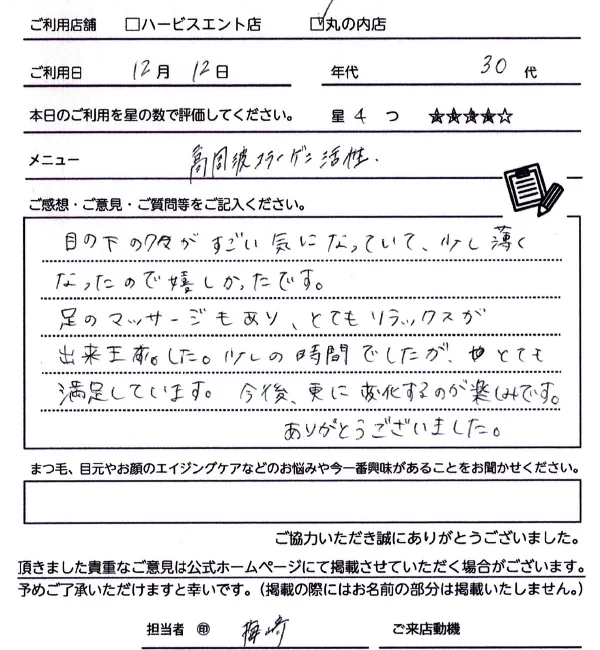 ご利用店舗 □ハービスエント店 ☑丸の内店
ご利用日 12月 12日 年代 30代
本日のご利用を星の数で評価してください。 星 4 つ ★★★★☆
メニュー 高周波コラーゲン活性.
ご感想・ご意見・ご質問等をご記入ください。
目の下のクマがすごい気になっていて、少し薄く
なったので嬉しかったです。
足のマッサージもあり、とてもリラックスが
出来ました。少しの時間でしたが、とても
満足しています。今後、更に変化するのが楽しみです。
ありがとうございました。
まつ毛、目元やお顔のエイジングケアなどのお悩みや今一番興味があることをお聞かせください。
ご協力いただき誠にありがとうございました。
頂きました貴重なご意見は公式ホームページにて掲載させていただく場合がございます。
予めご了承いただけますと幸いです。（掲載の際にはお名前の部分は掲載いたしません。）
担当者 ㊞ 梅崎 ご来店動機